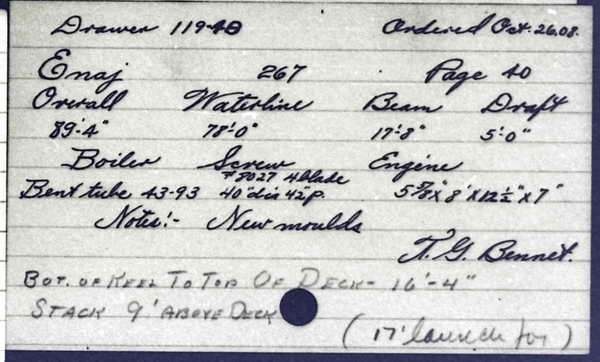 Drawer 119-40 Ordered Oct. 26.08.
Enaj 267 Page 40
Overall Waterline Beam Draft
89'-4" 78'-0" 17'-8" 5'-0"
Boiler Screw Engine
#8027 4 blade
Bent tube 43-93 40"dia 42"p. 5 7/8" x 8" x 12 1/2" x 7"
Notes:- New moulds
T. G. Bennet.
BOT. OF KEEL TO TOP OF DECK - 16'-4"
STACK 9' ABOVE DECK
(17' launch for)